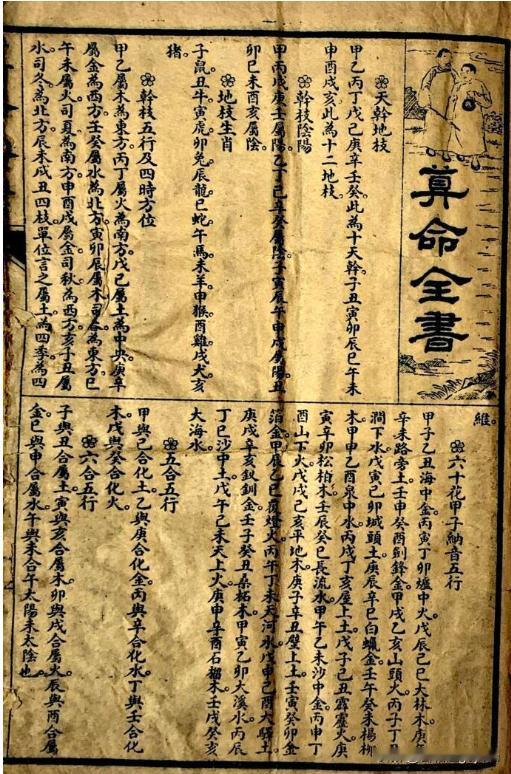 算命全書
天幹地枝
甲乙丙丁戊己庚辛壬癸此為十天幹子丑寅卯辰巳午未
申酉戌亥此為十二地枝。
幹枝陰陽
甲丙戊庚壬屬陽乙丁己辛癸屬陰子寅辰午申戌屬陽丑
卯巳未酉亥屬陰
地枝生肖
子鼠丑牛寅虎卯兔辰龍巳蛇午馬未羊申猴酉雞戌犬亥
豬
幹枝五行及四時方位
甲乙屬木為東方丙丁屬火為南方戊己屬土為中央庚辛
屬金為西方壬癸屬水為北方寅卯辰屬木司春為東方巳
午未屬火司夏為南方申酉戌屬金司秋為西方亥子丑屬
水司冬為北方辰未戌丑四枝單位言之屬土為四季為四
維。
六十花甲子納音五行
甲子乙丑海中金丙寅丁卯爐中火戊辰己巳大林木庚午
辛未路旁土壬申癸酉劍鋒金甲戌乙亥山頭火丙子丁丑
澗下水戊寅己卯城頭土庚辰辛巳白蠟金壬午癸未楊柳
木甲申乙酉泉中水丙戌丁亥屋上土戊子己丑霹靂火庚
寅辛卯松柏木壬辰癸巳長流水甲午乙未沙中金丙申丁
酉山下火戊戌己亥平地木庚子辛丑壁上土壬寅癸卯金
箔金甲辰乙巳覆燈火丙午丁未天河水戊申己酉大驛土
庚戌辛亥釵釧金壬子癸丑桑柘木甲寅乙卯大溪水丙辰
丁巳沙中土戊午己未天上火庚申辛酉石榴木壬戌癸亥
大海水
五合五行
甲與己合化土乙與庚合化金丙與辛合化水丁與壬合化
木戊與癸合化火
六合五行
子與丑合屬土寅與亥合屬木卯與戌合屬火辰與酉合屬
金巳與申合屬水午與未合午太陽未太陰也。